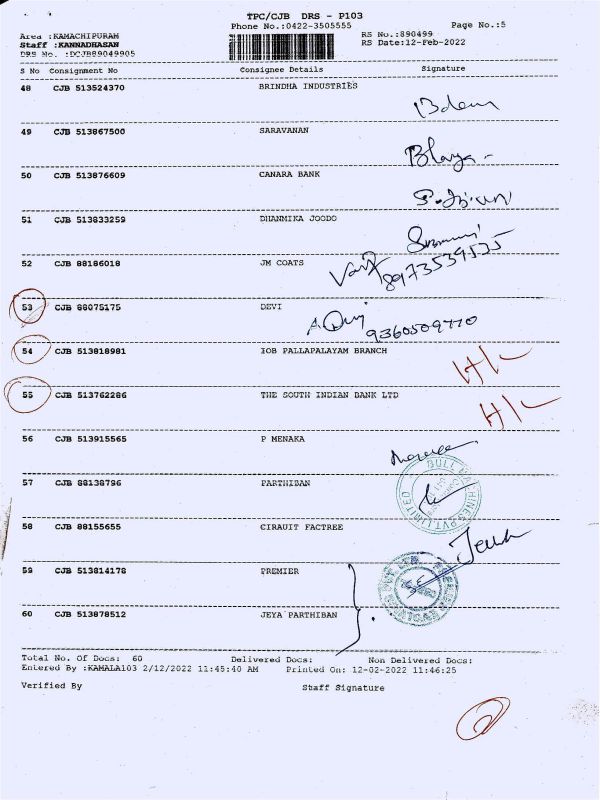 TPC/CJB DRS - P103
Phone No.:0422-3505555
Page No.:5
Area :KAMACHIPURAM
RS No.:890499
Staff :KANNADHASAN
RS Date:12-Feb-2022
DRS No. :DCJB89049905
S No Consignment No Consignee Details Signature
48 CJB 513524370 BRINDHA INDUSTRIES
49 CJB 513867500 SARAVANAN
50 CJB 513876609 CANARA BANK
51 CJB 513833259 DHANMIKA JOODO
52 CJB 88186018 JM COATS
8973539535
53 CJB 88075175 DEVI
9360509770
54 CJB 513818981 IOB PALLAPALAYAM BRANCH
H/L
55 CJB 513762286 THE SOUTH INDIAN BANK LTD
H/L
56 CJB 513915565 P MENAKA
57 CJB 88138796 PARTHIBAN
BULL MACHINES PVT LIMITED
58 CJB 88155655 CIRAUIT FACTREE
59 CJB 513814178 PREMIER
60 CJB 513878512 JEYA PARTHIBAN
Total No. Of Docs: 60 Delivered Docs: Non Delivered Docs:
Entered By :KAMALA103 2/12/2022 11:45:40 AM Printed On: 12-02-2022 11:46:25
Verified By Staff Signature
2